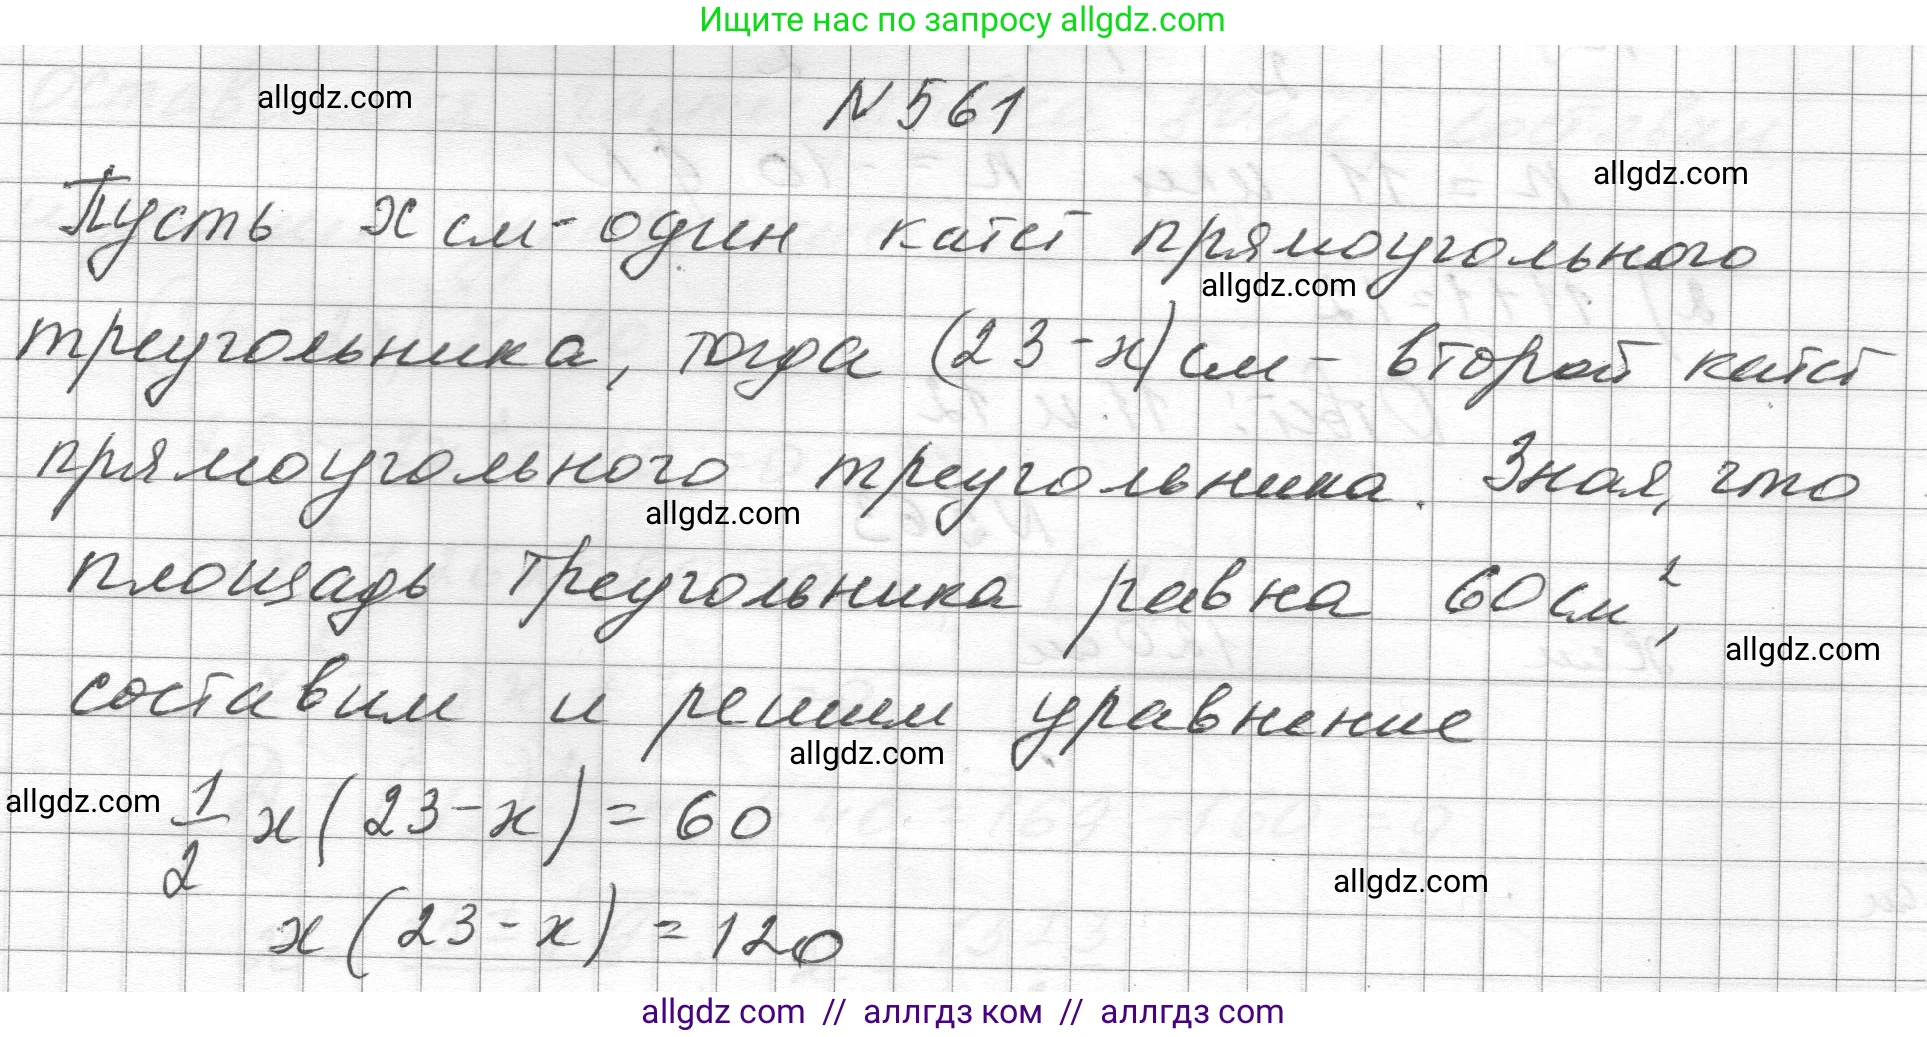 Ищите нас по запросу allgdz.com
allgdz.com
N 561
allgdz.com
Пусть x см - один катет прямоугольного
allgdz.com
треугольника, тогда (23-x) см - второй катет
прямоугольного треугольника. Зная, что
allgdz.com
площадь треугольника равна 60 см²,
allgdz.com
составим и решим уравнение
allgdz.com
allgdz.com
1/2 x(23-x) = 60
allgdz.com
x(23-x) = 120
allgdz com // аллгдз ком // аллгдз com